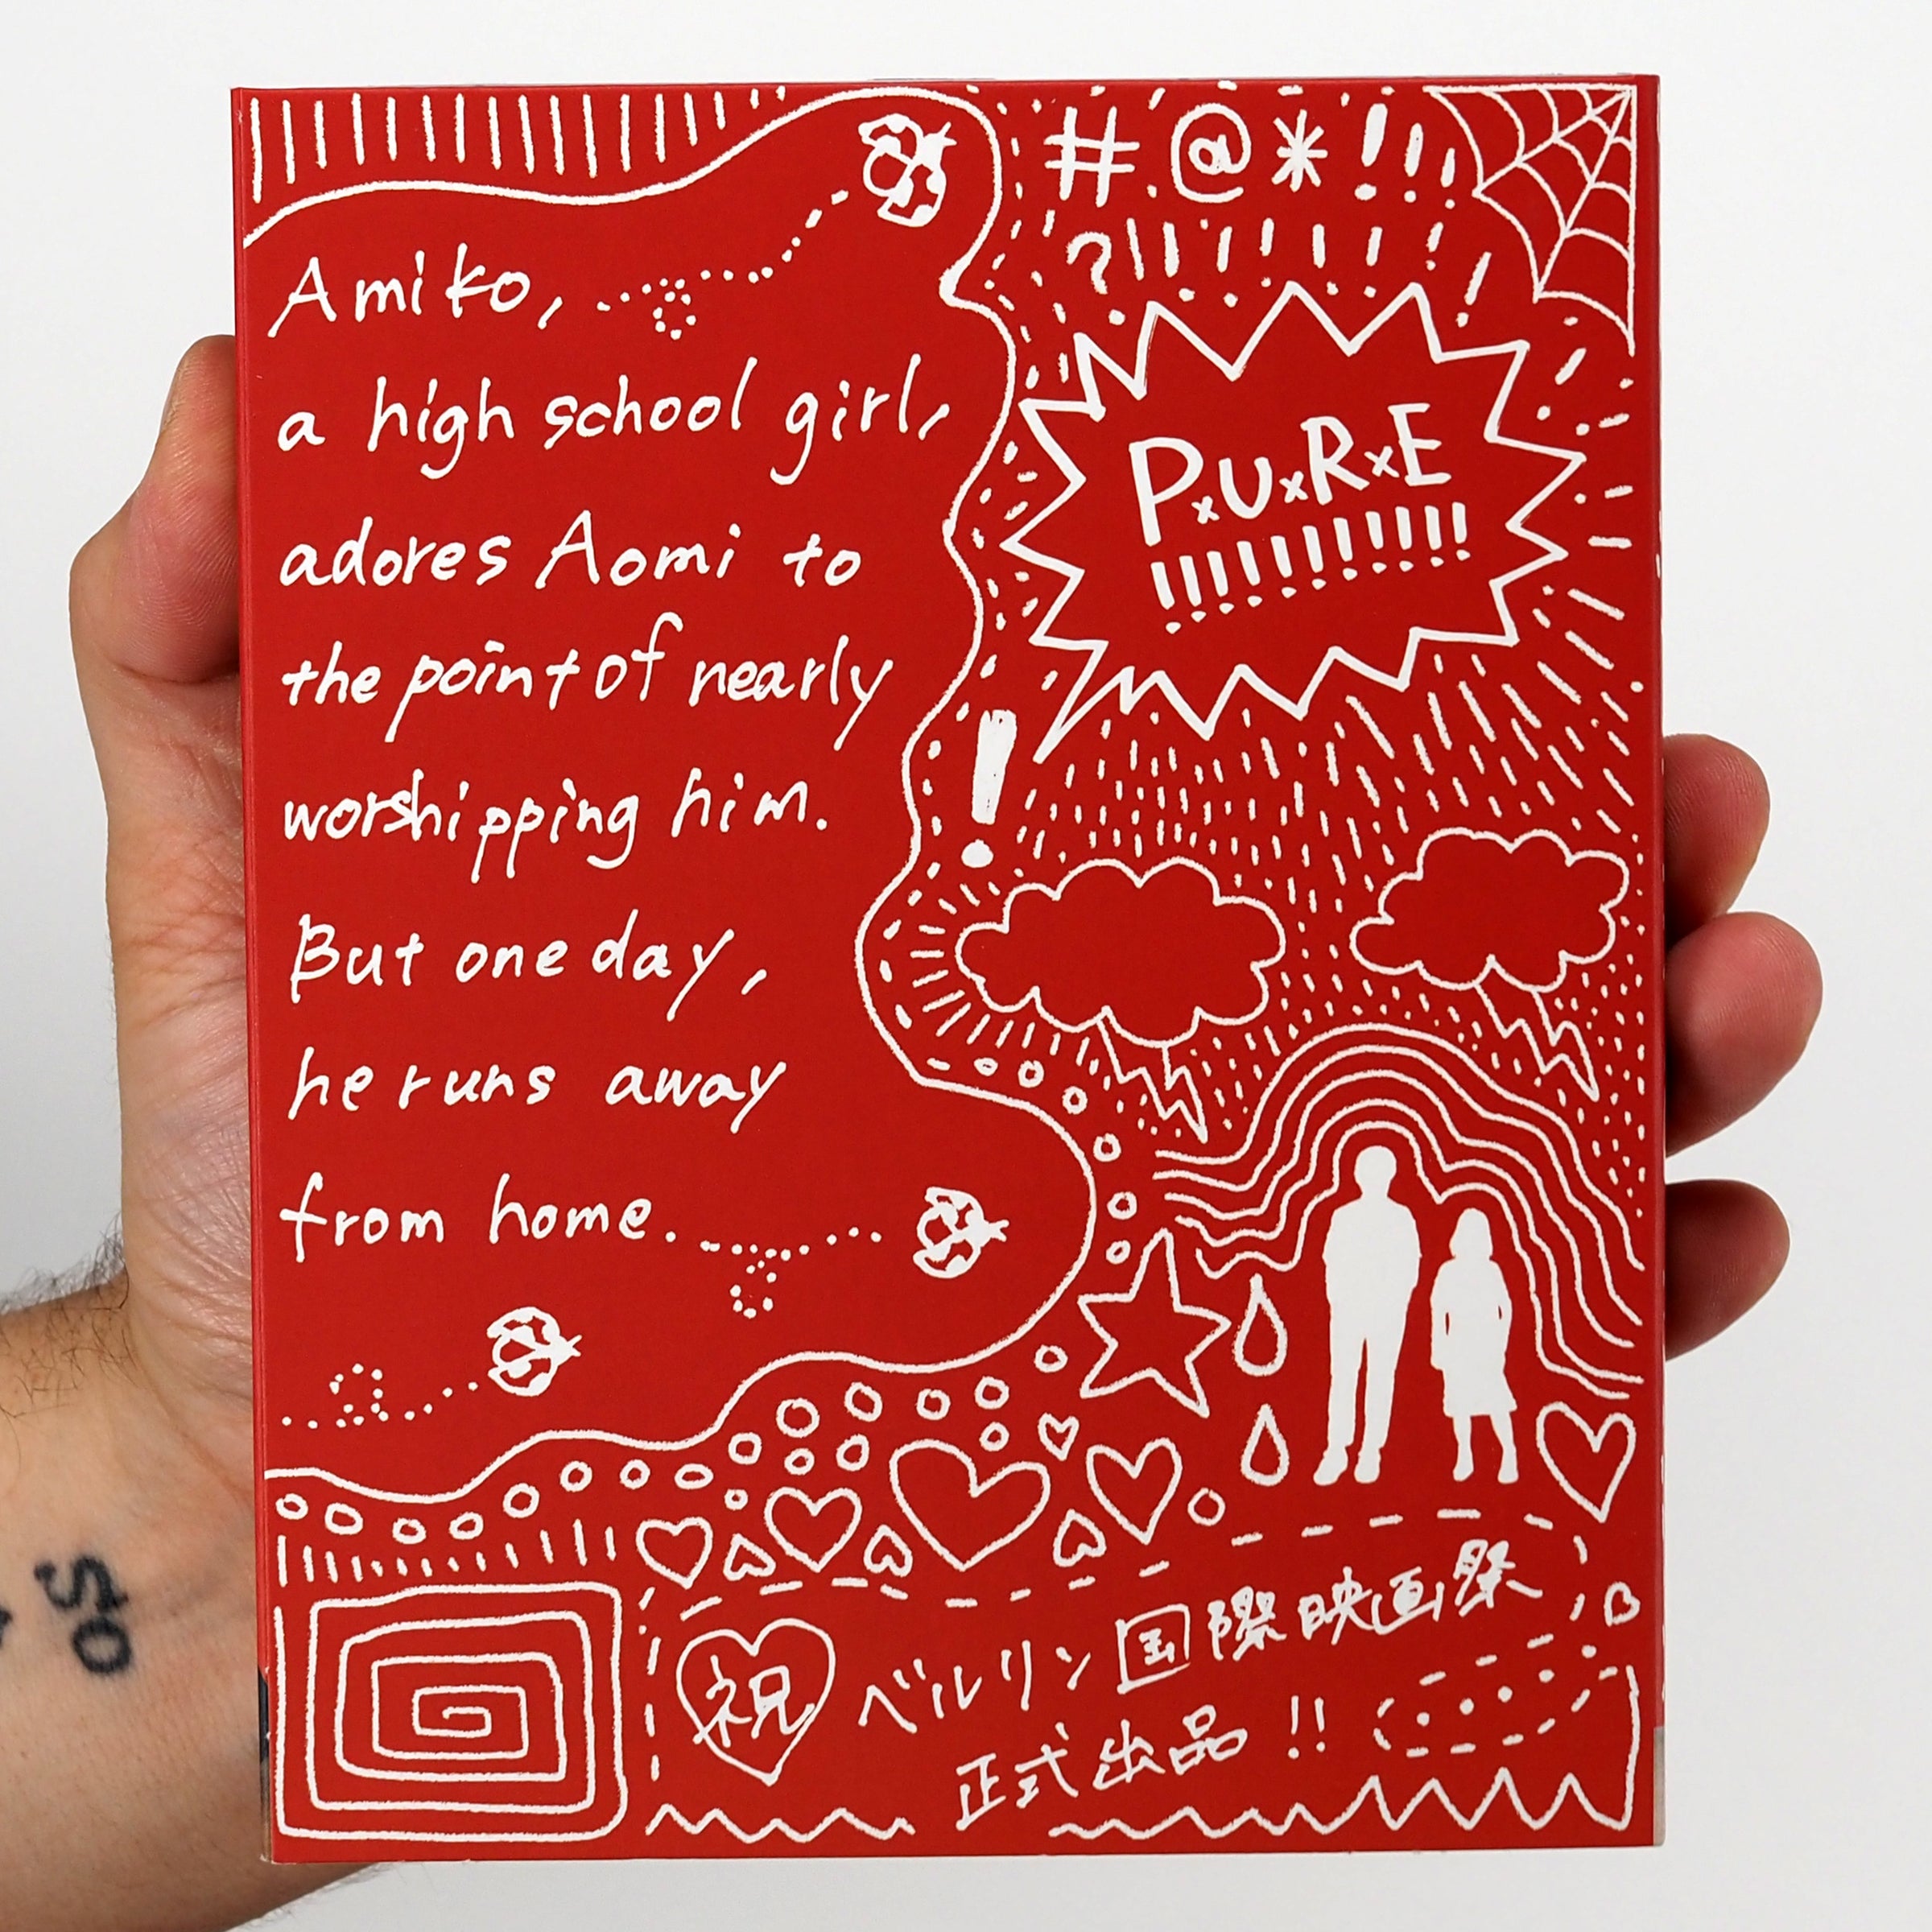 Amiko,
a high school girl,
adores Aomi to
the point of nearly
worshipping him.
But one day,
he runs away
from home.
#.@*!!!
?!!!!!!!!
PxUxRxE
!!!!!!!!!!!
!
祝
ベルリン国際映画祭
正式出品!!